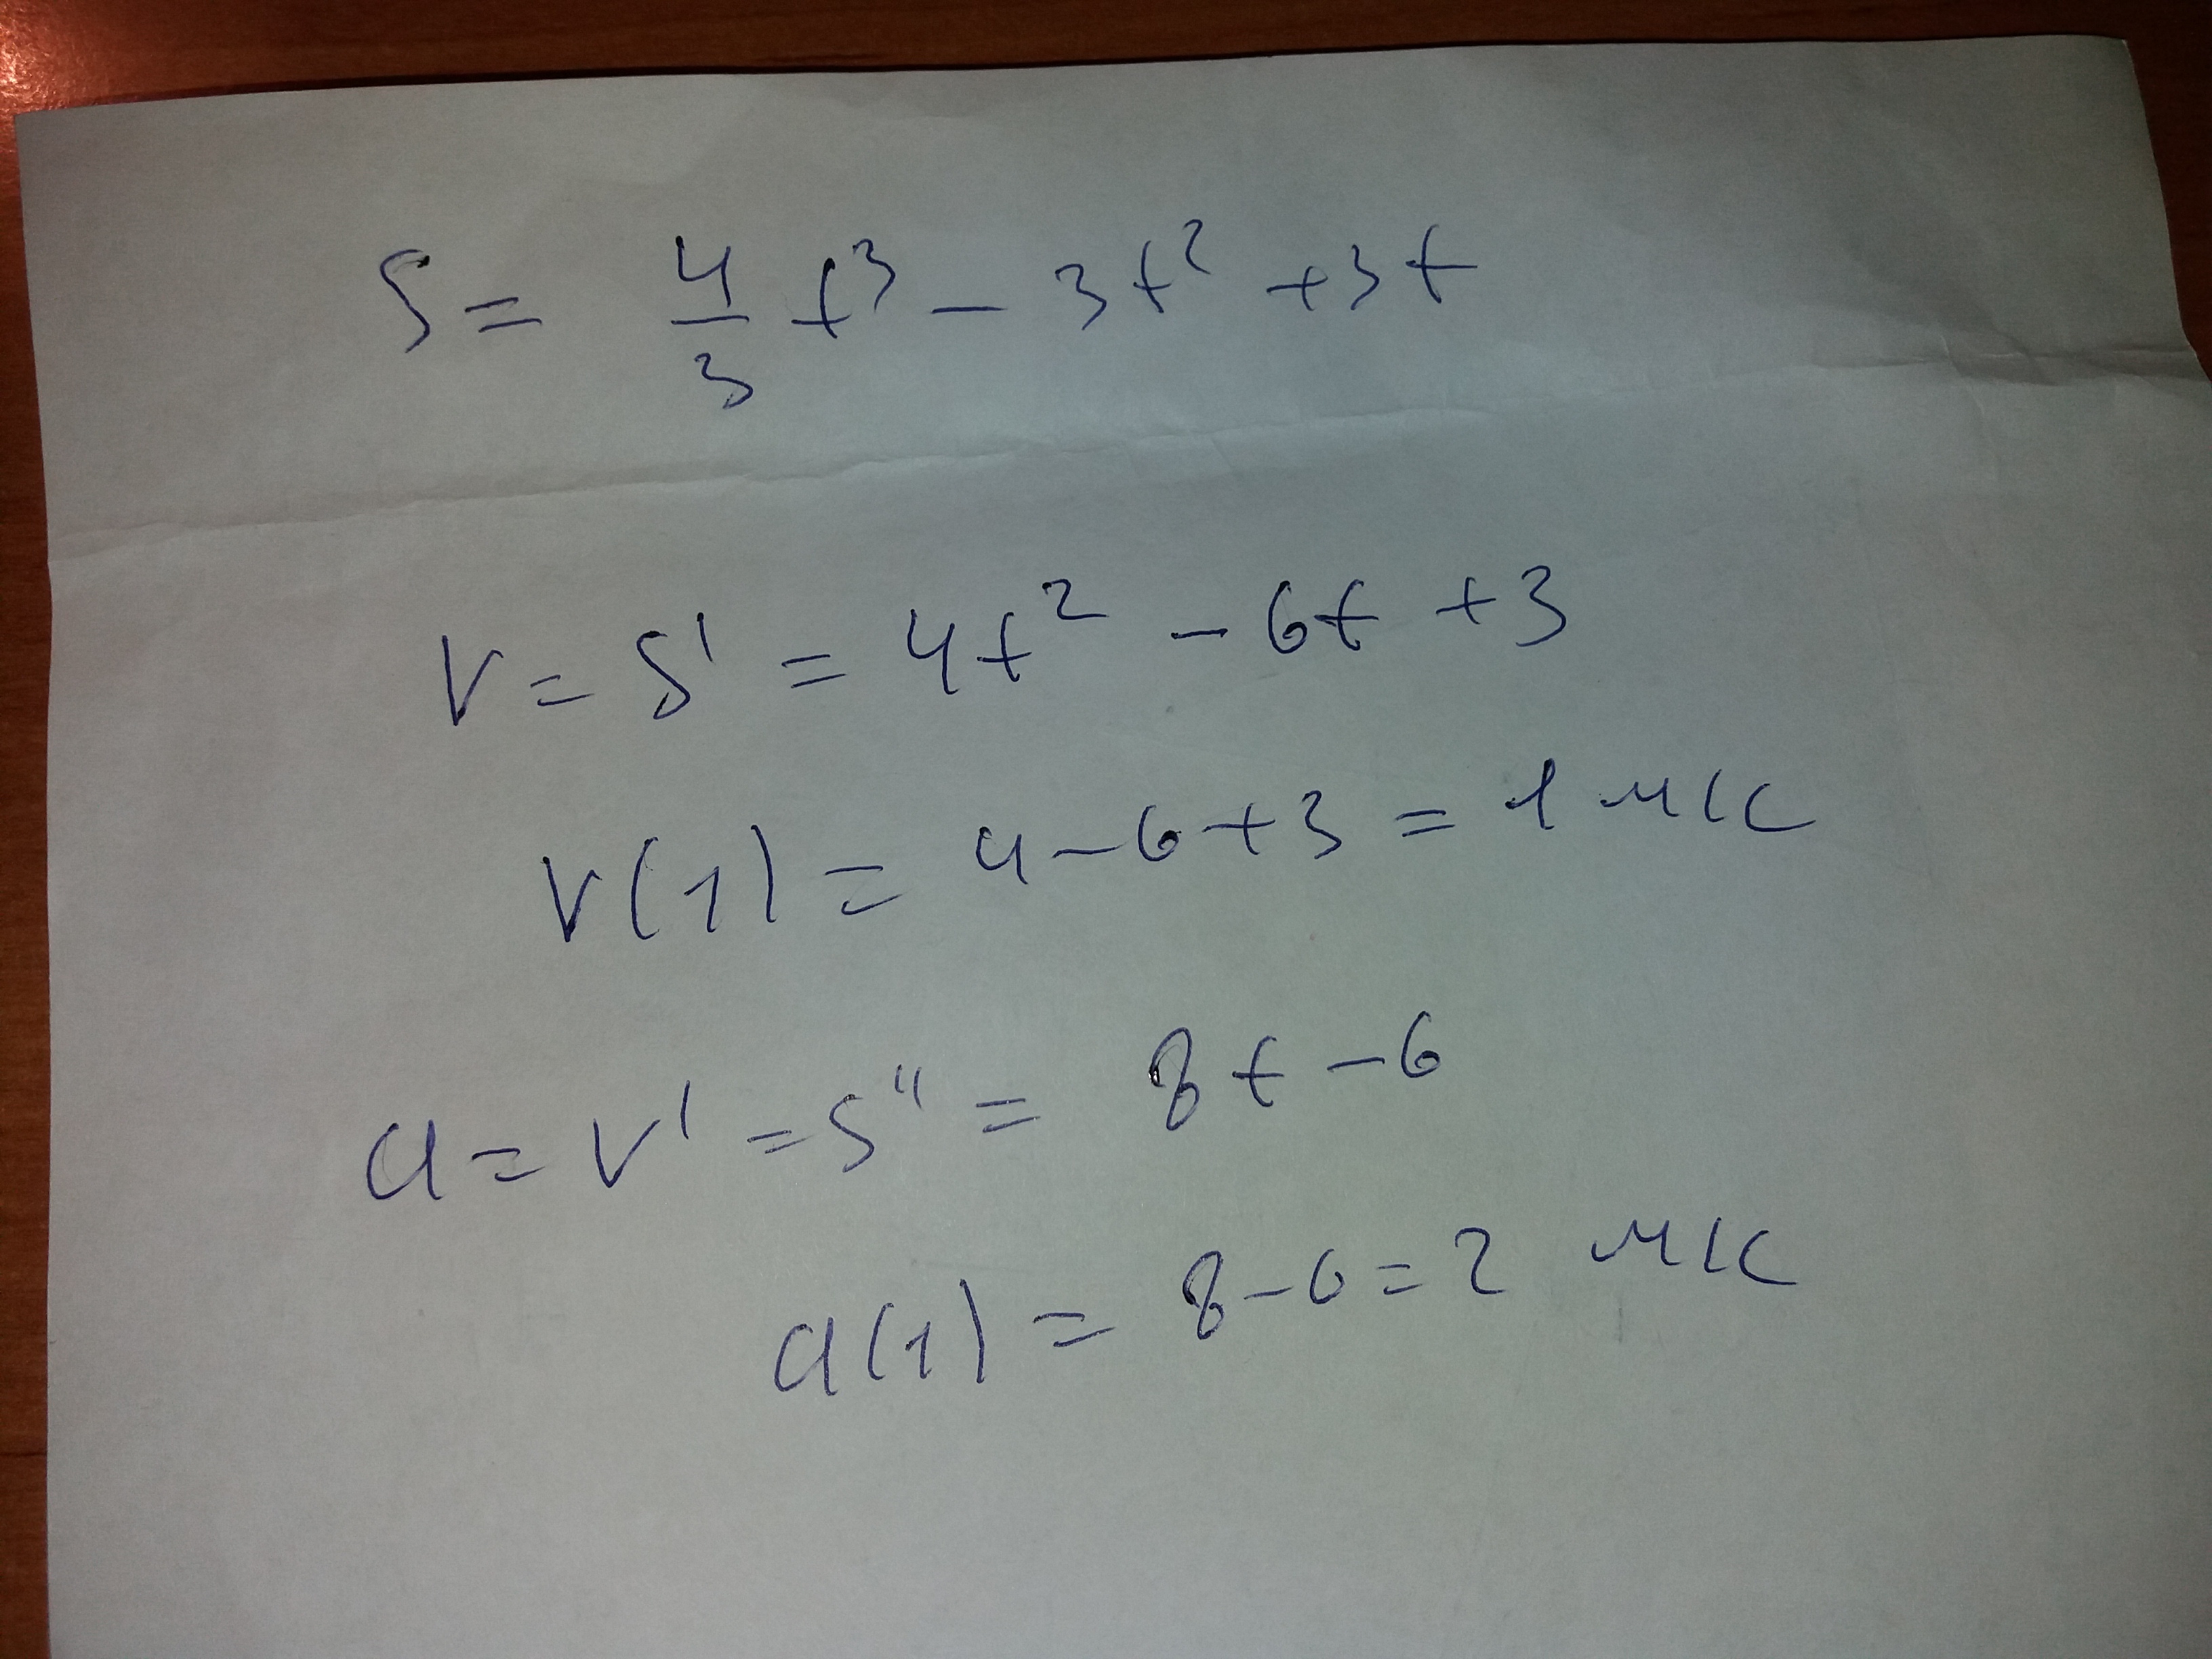 S = 4/3 t³ - 3t² + 3t
V = S' = 4t² - 6t + 3
V(1) = 4 - 6 + 3 = 1 м/с
a = V' = S'' = 8t - 6
a(1) = 8 - 6 = 2 м/с